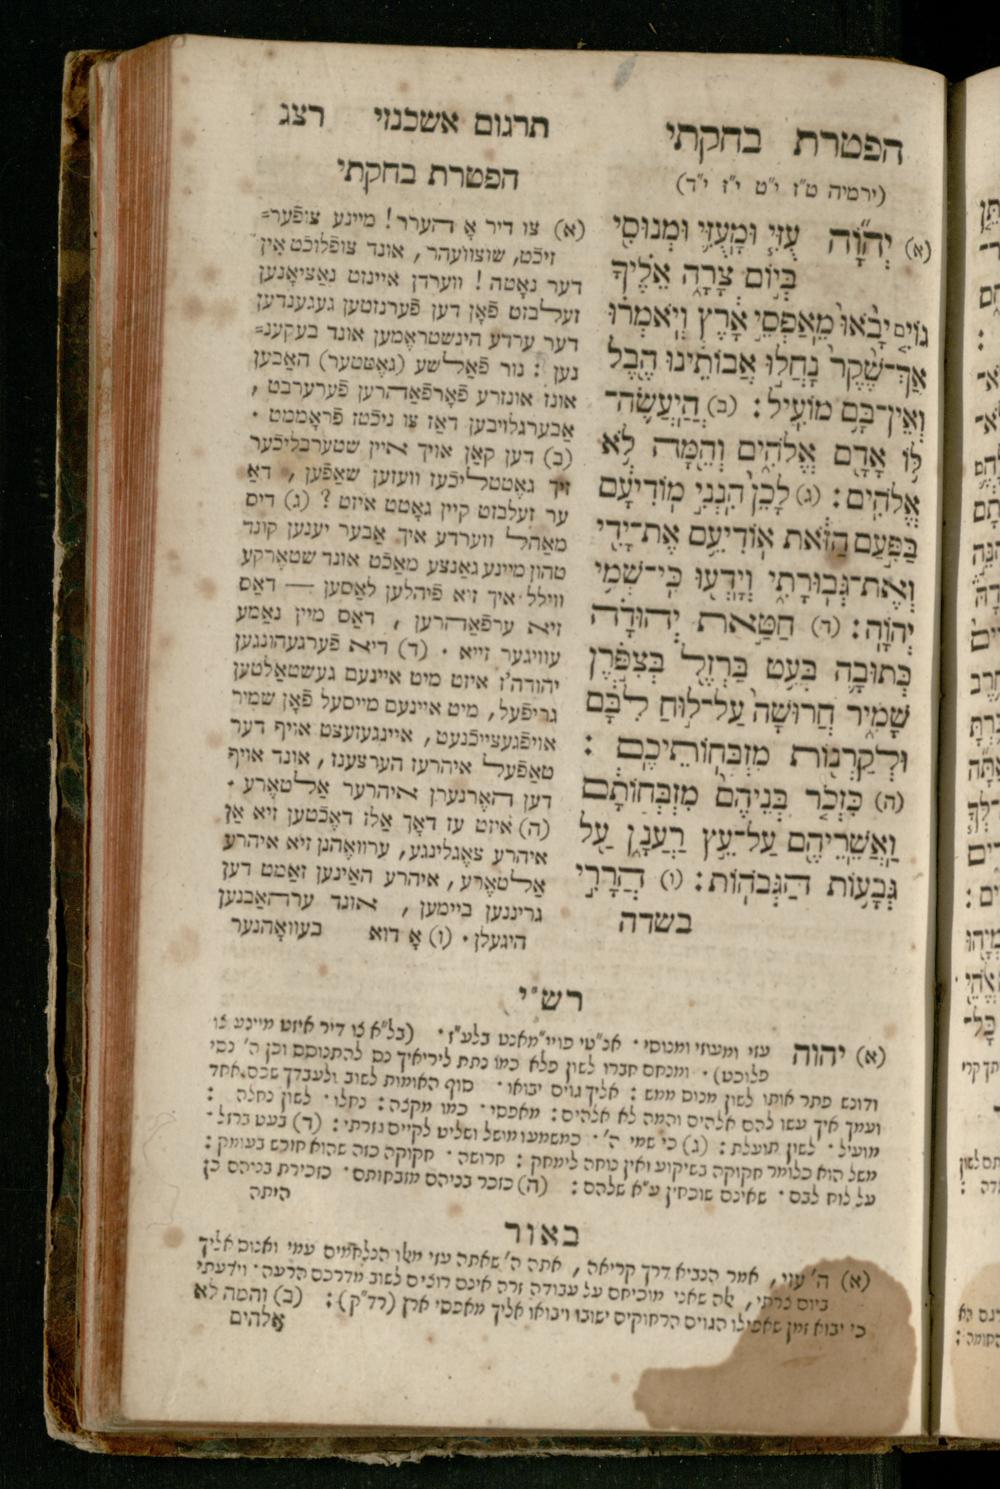 הפטרת בחקתי
(ירמיה ט"ז י"ט י"ז י"ד)
(א) יְהוָה עֻזִּי וּמָעֻזִּי וּמְנוּסִי
בְּיוֹם צָרָה אֵלֶיךָ
גּוֹיִם יָבֹאוּ מֵאַפְסֵי אָרֶץ וְיֹאמְרוּ
אַךְ־שֶׁקֶר נָחֲלוּ אֲבוֹתֵינוּ הֶבֶל
וְאֵין־בָּם מוֹעִיל: (ב) הֲיַעֲשֶׂה־
לּוֹ אָדָם אֱלֹהִים וְהֵמָּה לֹא
אֱלֹהִים: (ג) לָכֵן הִנְנִי מוֹדִיעָם
בַּפַּעַם הַזֹּאת אוֹדִיעֵם אֶת־יָדִי
וְאֶת־גְּבוּרָתִי וְיָדְעוּ כִּי־שְׁמִי
יְהוָה: (ד) חַטַּאת יְהוּדָה
כְּתוּבָה בְּעֵט בַּרְזֶל בְּצִפֹּרֶן
שָׁמִיר חֲרוּשָׁה עַל־לוּחַ לִבָּם
וּלְקַרְנוֹת מִזְבְּחוֹתֵיכֶם:
(ה) כִּזְכֹּר בְּנֵיהֶם מִזְבְּחוֹתָם
וַאֲשֵׁרֵיהֶם עַל־עֵץ רַעֲנָן עַל
גְּבָעוֹת הַגְּבֹהוֹת: (ו) הֲרָרִי
בשדה
תרגום אשכנזי רצג
הפטרת בחקתי
(א) צו דיר אָ הערר! מיינע צופֿער=
זיכֿט, שוצוועהר, אונד צופֿלוכֿט אין
דער נאָטה! ווערדן איינזט נאַציאָנען
זעלבזט פֿאָן דען פֿערנזטען געגענדען
דער ערדע הינשטראָמען אונד בעקענ=
נען: נור פֿאַלשע (גאָטטער) האַבען
אונז אונזרע פֿאָרפֿאַהרען פֿערערבט,
אַבערגלויבען דאַז צו ניכֿטז פֿראָממט.
(ב) דען קאַן אויך איין שטערבליכֿער
זיך געטטליכֿעז וועזען שאַפֿען, דאַ
ער זעלבזט קיין גאָטט איזט? (ג) דיס
מאַהל ווערדע איך אַבער יענען קונד
טהון מיינע גאַנצע מאַכֿט אונד שטאָרקע
ווילל איך זיא פֿיהלען לאַסען — דאַס
זיא ערפֿאַהרען, דאַס מיין נאַמע
עוויגער זייא. (ד) דיא פֿערגעהונגען
יהודה'ז איזט מיט איינעם געשטאַלטען
גריפֿעל, מיט איינעם מייסעל פֿאָן שמיר
אויפֿגעצייכֿנעט, איינגעזעצט אויף דער
טאַפֿעל איהרעז הערצענז, אונד אויף
דען האָרנערן איהרער אַלטאָרע.
(ה) איזט עז דאָך אַלז דאָכֿטען זיא אַן
איהרע צאָגלינגע, ערוואָהנן זיא איהרע
אַלטאָרע, איהרע האַינען זאַמט דען
גרינען ביימען, אונד ערהאַבנען
היגעלן. (ו) אָ דוא בעוואָהנער
רש"י
(א) יהוה עזי ומעוזי ומנוסי. (בל"א צו דיר איזט מיינע צו
פלוכט). ומנחם חברו לשון פלא כמו נתת ליריאיך נס להתנוסס וכן ה' נסי
ודונש פתר אותו לשון מנוס ממש: אליך גוים יבואו. סוף האומות לשוב ולעבדך שכם אחד
ועמך איך עשו להם אלהים והמה לא אלהים: מאפסי. כמו מקצה: נחלו. לשון נחלה:
מועיל. לשון תועלת: (ג) כי שמי ה'. כמשמעו מושל ושליט לקיים גזרתי: (ד) בעט ברזל.
משל הוא כלומר חקוקה בשיקוע ואין נוחה לימחק: חרושה. חקוקה כזה שהוא חורש בעומק:
על לוח לבם. שאינם שוכחין ע"א שלהם: (ה) כזכר בניהם מזבחותם. כזכירת בניהם כן
היתה
באור
(א) ה' עזי, אמר הנביא דרך קריאה, אתה ה' שאתה עזי מול הנלחמים עמי ואנוס אליך
ביום צרתי, אלה שאני מוכיחם על עבודה זרה אינם רוצים לשוב מדרכם הרעה. וידעתי
כי יבוא זמן שאפילו הגוים הרחוקים ישובו ויבואו אליך מאפסי ארץ (רד"ק): (ב) והמה לא
אלהים